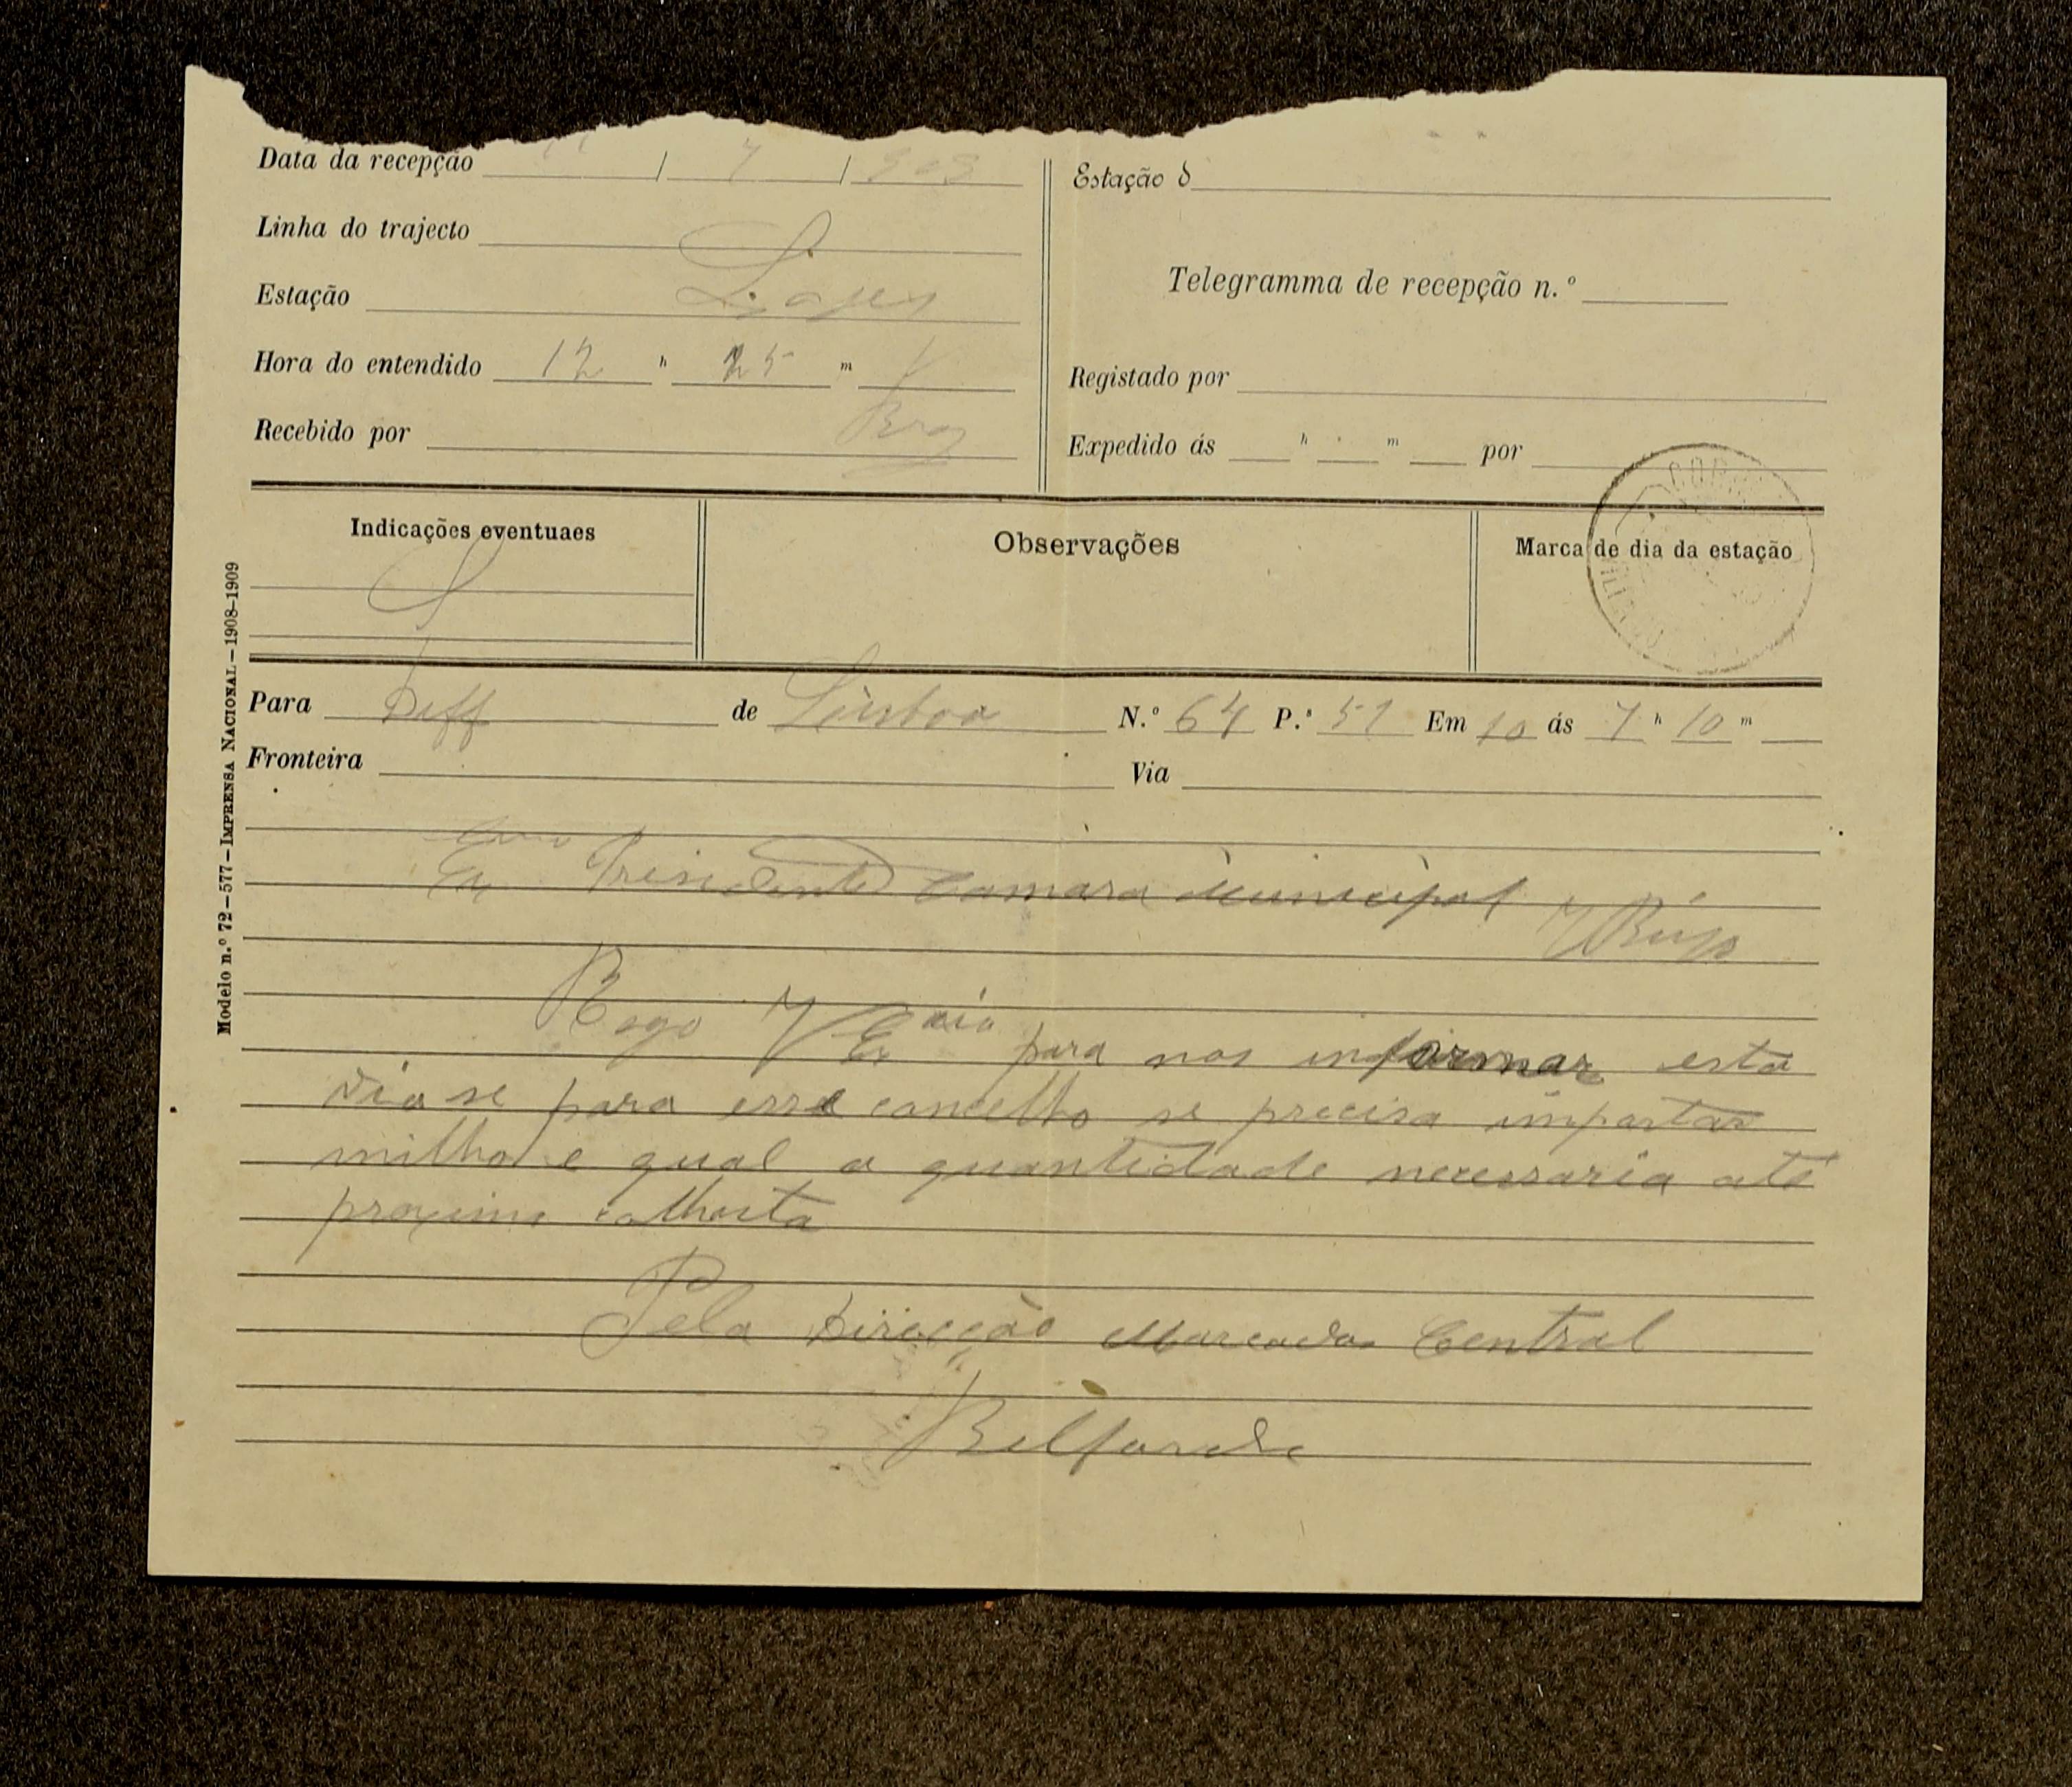 Data da recepção / 7 / 909
Estação d
Linha do trajecto
Estação
Telegramma de recepção n.º
Hora do entendido 12 h 25 m
Registado por
Recebido por Braz
Expedido ás h m por
Indicações eventuaes
Observações
Marca de dia da estação
S
Para Diff de Lisboa N.º 64 P.s 51 Em 10 ás 7 h 10 m
Fronteira Via
Exmo Presidente Camara Municipal
Rogo V Excia para nos informar esta
via se para esse concelho se precisa importar
milho e qual a quantidade necessaria até
proxima colheita
Pela Direcção Mercado Central
Belforde
Modelo n.º 72—577—IMPRENSA NACIONAL—1908-1909